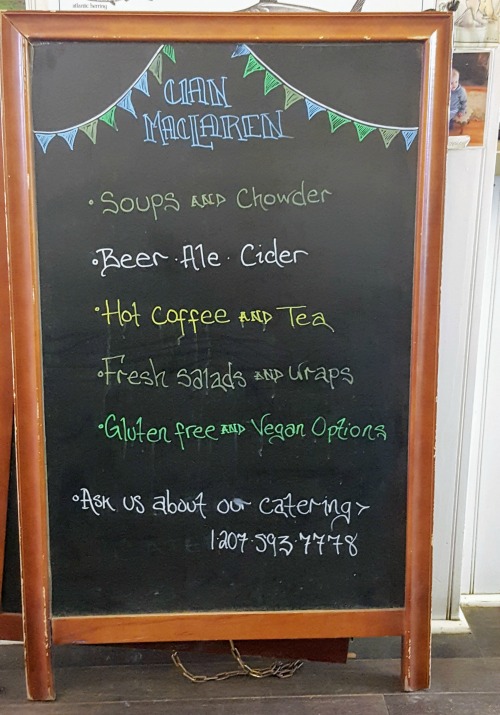 atlantic herring
CLAN
MACLAREN
• Soups AND Chowder
• Beer · Ale · Cider
• Hot Coffee AND Tea
• Fresh Salads AND Wraps
• Gluten free AND Vegan Options
• Ask us about our catering >
1·207·593·7778